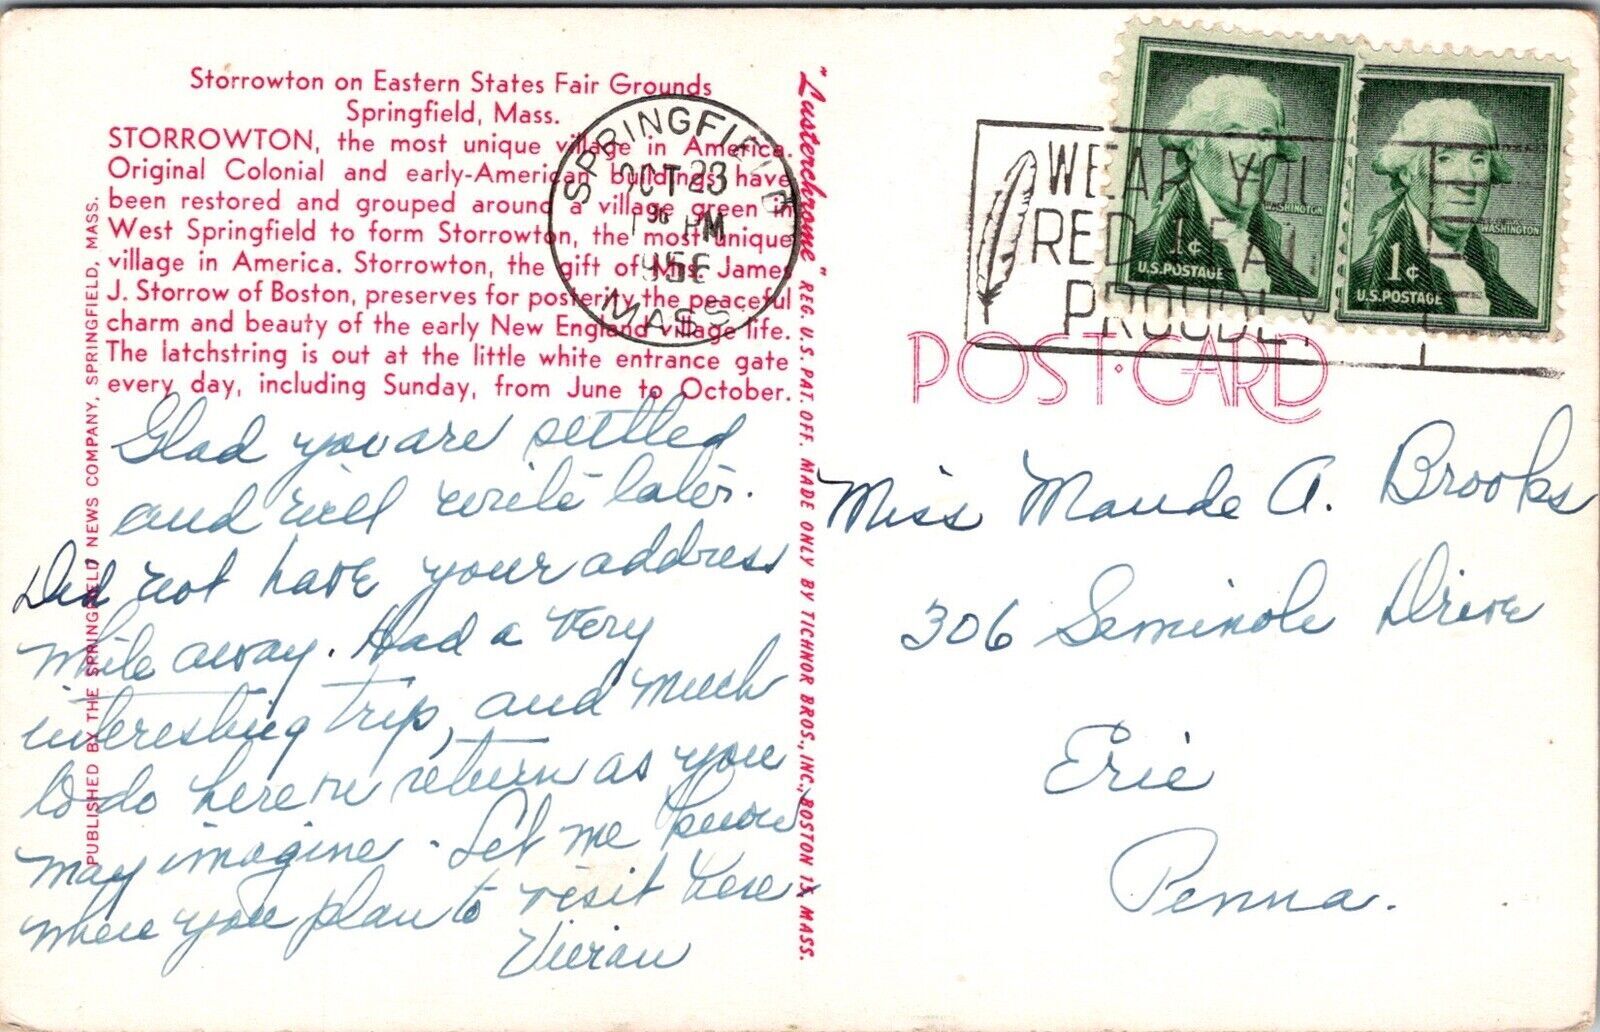 Storrowton on Eastern States Fair Grounds
Springfield, Mass.
STORROWTON, the most unique village in America.
Original Colonial and early-American buildings have
been restored and grouped around a village green in
West Springfield to form Storrowton, the most unique
village in America. Storrowton, the gift of Mrs. James
J. Storrow of Boston, preserves for posterity the peaceful
charm and beauty of the early New England village life.
The latchstring is out at the little white entrance gate
every day, including Sunday, from June to October.
PUBLISHED BY THE SPRINGFIELD NEWS COMPANY, SPRINGFIELD, MASS.
Glad you are settled
and will write later.
Did not have your address
while away. Had a very
interesting trip, and much
to do here on return as you
may imagine. Let me know
when you plan to visit here
Vivian
"Lusterchrome" REG. U.S. PAT. OFF. MADE ONLY BY TICHNOR BROS., INC., BOSTON 15, MASS.
SPRINGFIELD
OCT 23
PM
MASS.
WEAR YOU
RED
PROUDLY
WASHINGTON
1¢
U.S. POSTAGE
WASHINGTON
1¢
U.S. POSTAGE
POST·CARD
Miss Maude A. Brooks
306 Seminole Drive
Erie
Penna.